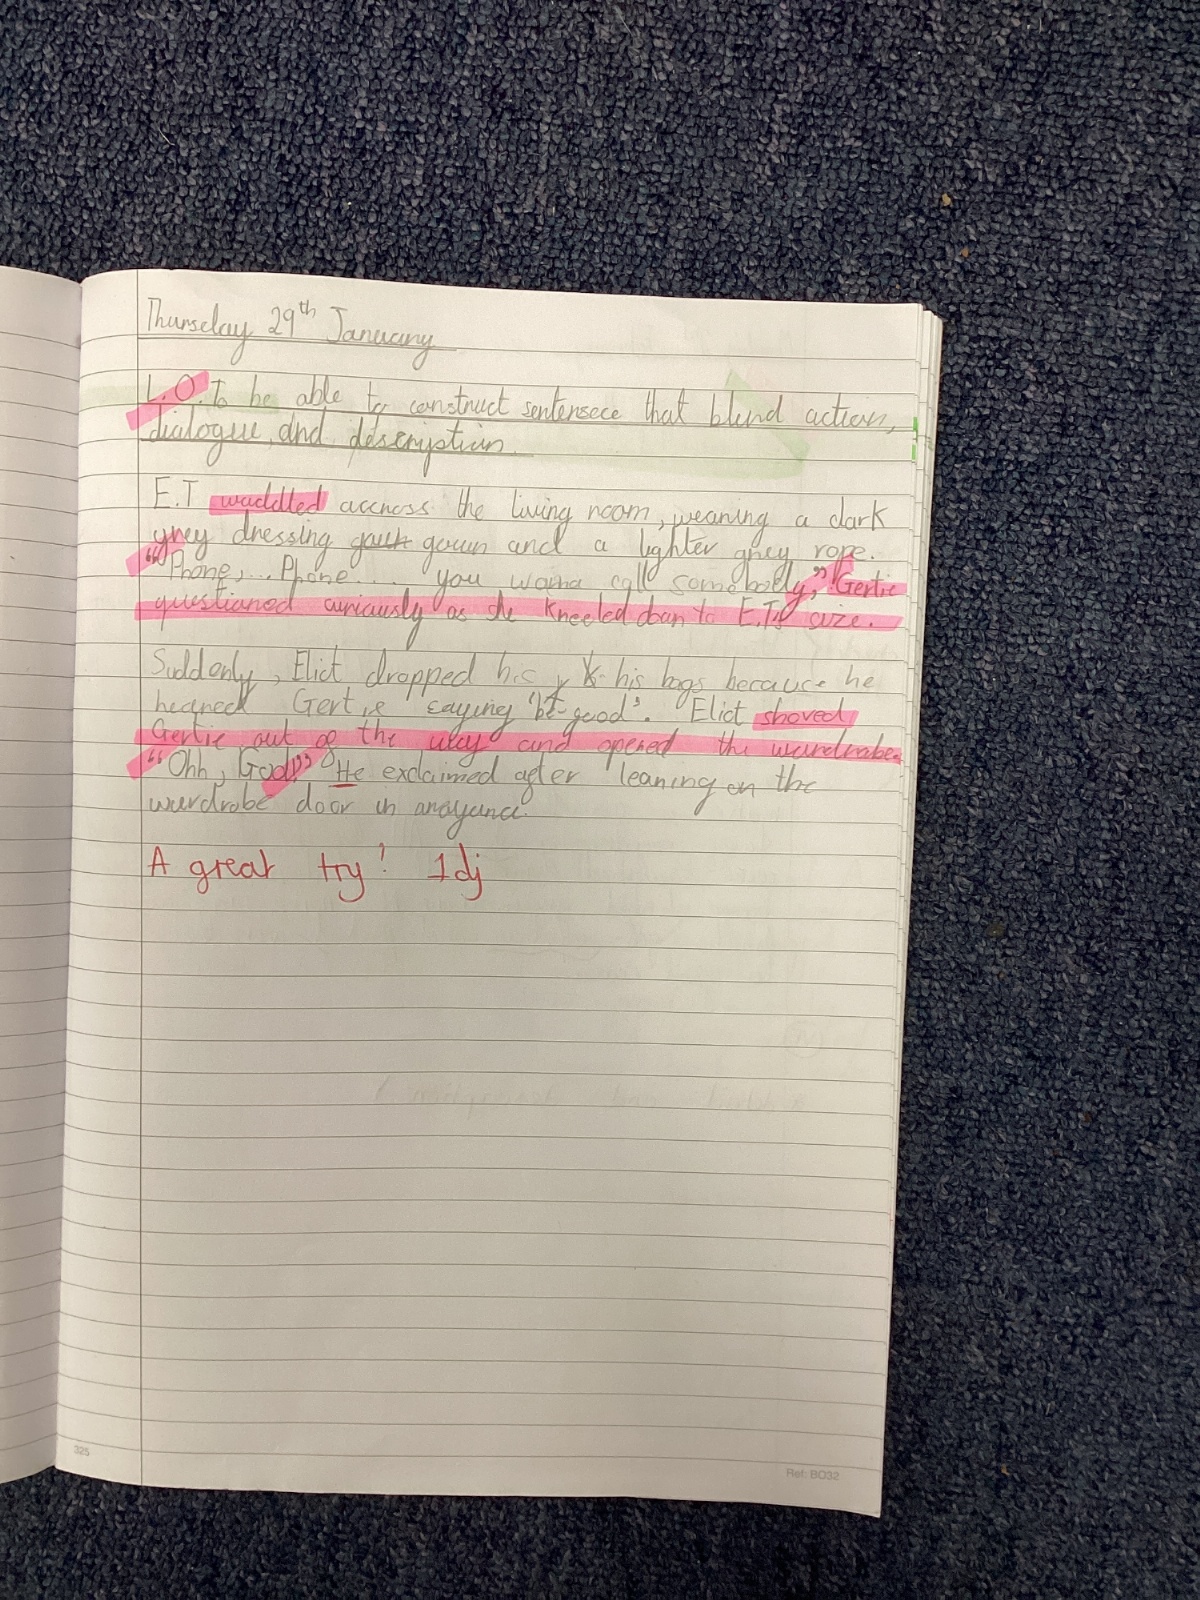 Thursday 29th January
L.O. To be able to construct sentensece that blend action,
dialogue, and description.
E.T waddled accross the living room, wearing a dark
grey dressing gown and a lighter grey rope.
"Phone,... Phone.... you wana call somebody," Gertie
questioned curiously as she kneeled down to E.T's size.
Suddenly, Eliot dropped his his bags because he
heared Gertie saying 'be good'. Eliot shoved
Gertie out of the way and opened the wardrobe.
"Ohh, God!" He exclaimed after leaning on the
wardrobe door in anoyance.
A great try! 1dj
325
Ref: BO32